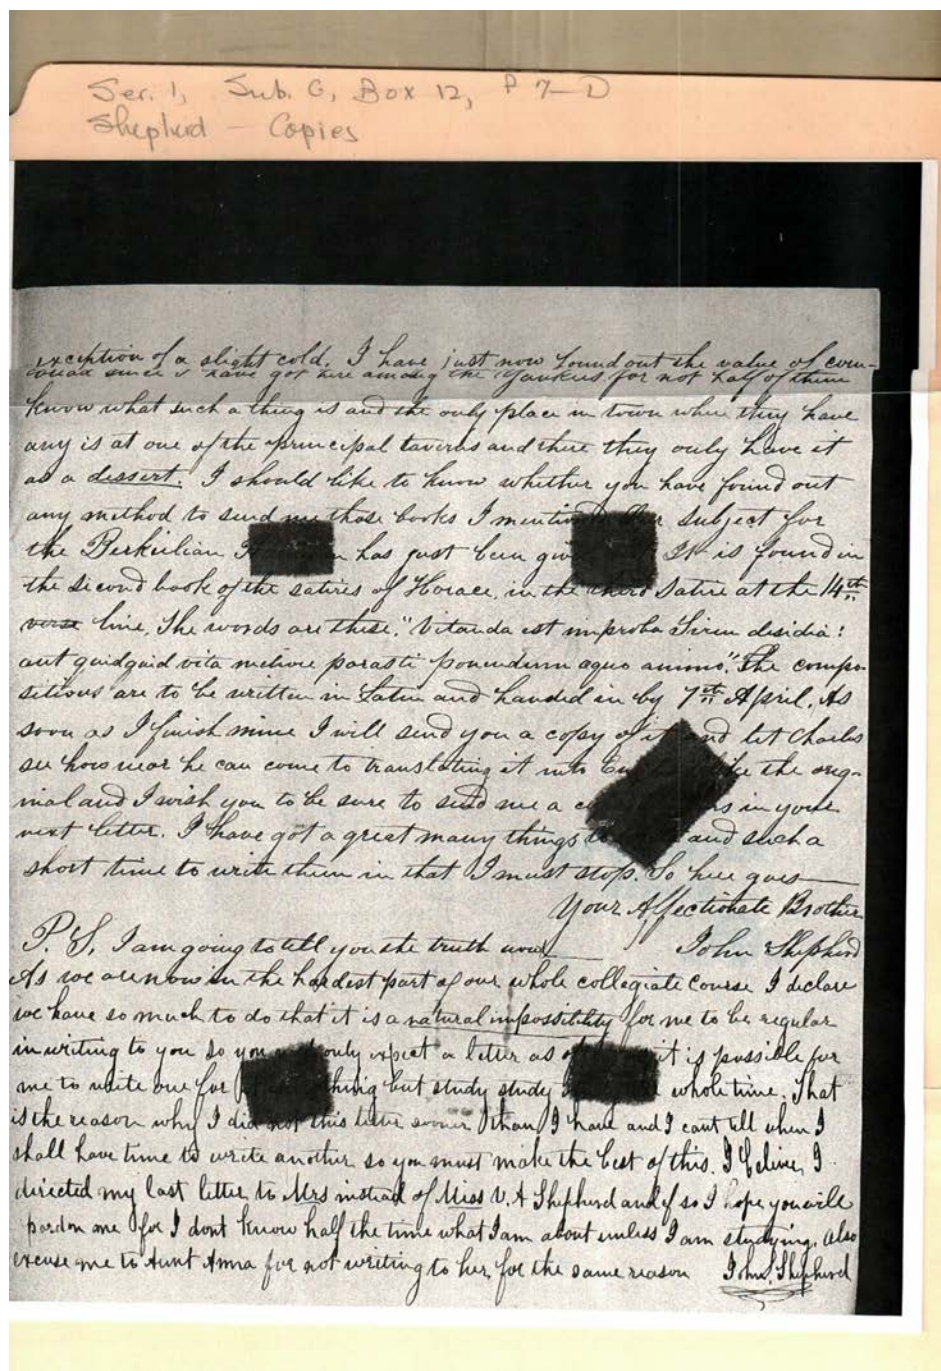 Ser. 1, Sub. G, Box 12, P 7-D
Shepherd - Copies
exception of a slight cold. I have just now found out the value of corn-
bread since I have got here among the Yankees for not half of them
know what such a thing is and the only place in town where they have
any is at one of the principal taverns and there they only have it
as a dessert. I should like to know whether you have found out
any method to send me those books I mention Our subject for
the Berkelian has just been giv It is found in
the second book of the satires of Horace, in the third Satire at the 14th
verse line, The words are these, "Vitanda est improba Siren desidia:
aut quidquid vita meliore parasti ponendum aquo animo." The compo-
sitions are to be written in Latin and handed in by 7th April. As
soon as I finish mine I will send you a copy of it and let Charles
see how near he can come to translating it into the orig-
inal and I wish you to be sure to send me a in your
next letter. I have got a great many things and such a
short time to write them in that I must stop. So here goes
Your Affectionate Brother
John Shepherd
P.S. I am going to tell you the truth now
As we are now in the hardest part of our whole collegiate course I declare
we have so much to do that it is a natural impossibility for me to be regular
in writing to you so you only expect a letter as it is possible for
me to write one for but study study whole time. That
is the reason why I did not this letter sooner than I have and I cant tell when I
shall have time to write another so you must make the best of this. I believe I
directed my last letter to Mrs instead of Miss V. A Shepherd and if so I hope you will
pardon me for I dont know half the time what I am about unless I am studying. Also
excuse me to Aunt Anna for not writing to her, for the same reason John S. Shepherd